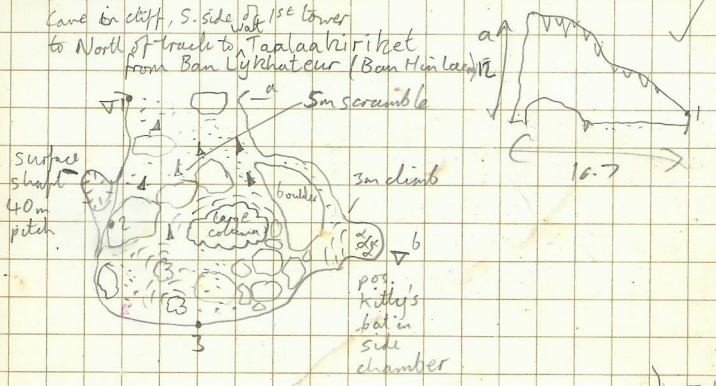 Cave in cliff, S. side of 1st tower
wat
to North of track to Taalaakiriket
from Ban Lykhateur (Ban Hin
a
12
1
16.7
1
a
5m scramble
surface
shaft
40m
pitch
boulder
3m climb
2
large
column
b
3
pos.
Kitty's
bat in
side
chamber
3